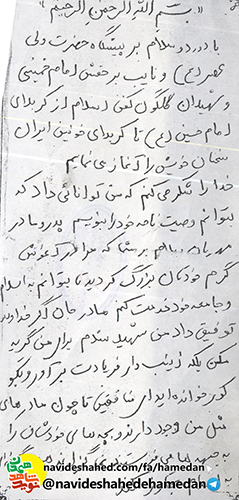 «بسم الله الرحمن الرحیم»
با درود و سلام بر پیشگاه حضرت ولی
عصر (عج) و نایب بر حقش امام خمینی
و شهیدان گلگون کفن اسلام از کربلای
امام حسین (ع) تا کربلای خونین ایران
سخنان خویش را آغاز می نمایم
خدا را شکر می کنم که به من توانائی داد که
بتوانم وصیت نامه خود را بنویسم پدر و مادر
مهربانم سلام بر شما که مرا در آغوش
گرم خودتان بزرگ کردید تا بتوانم به اسلام
و جامعه خود خدمت کنم مادر جان اگر خداوند
توفیق داد من شهید شدم برای من گریه
مکن بلکه زینب وار فریادت بر آور و بگو
کور خوانده اید ای منافقین تا چون مادرهای
مثل من وجود دارند و بچه های خودشان را
navideshahed.com/fa/hamedan
@navideshahedehamedan